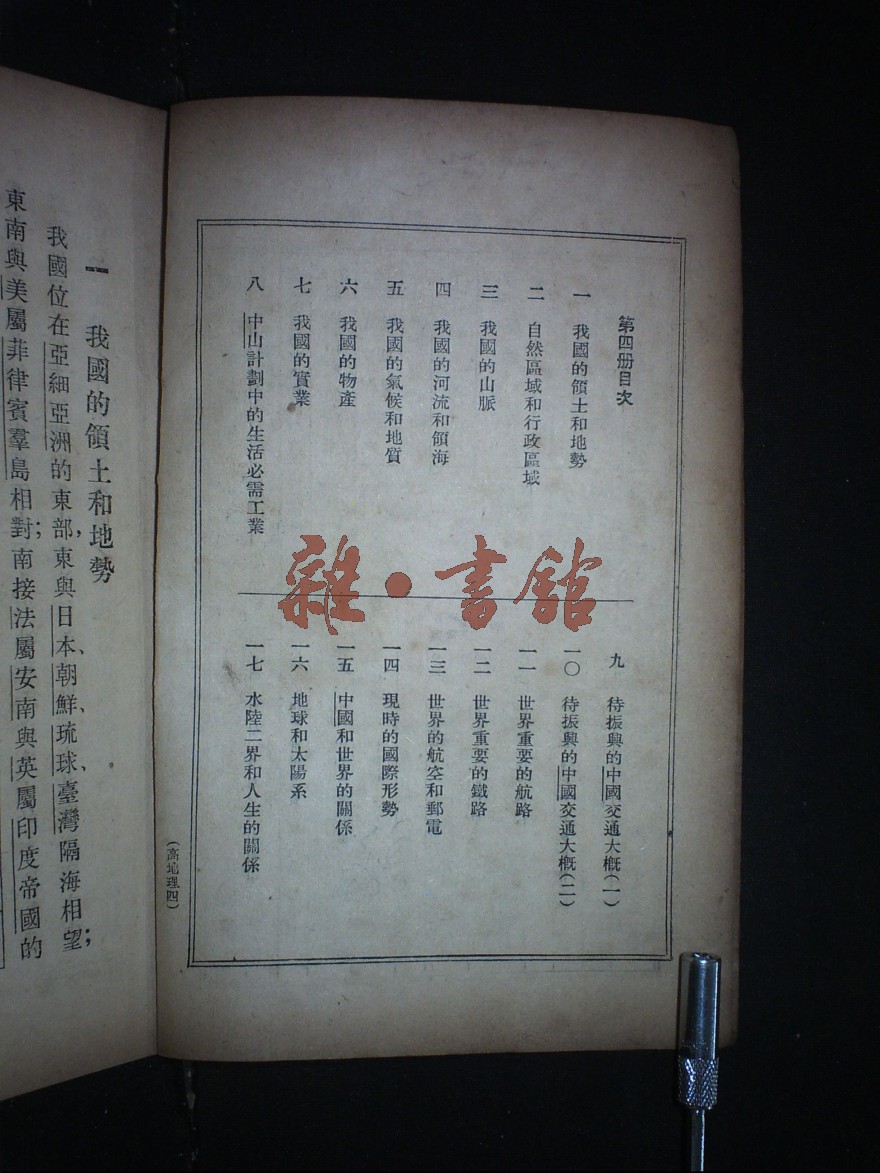 第四册目次
一 我國的領土和地勢
二 自然區域和行政區域
三 我國的山脈
四 我國的河流和領海
五 我國的氣候和地質
六 我國的物產
七 我國的實業
八 中山計劃中的生活必需工業
九 待振興的中國交通大概(一)
一〇 待振興的中國交通大概(二)
一一 世界重要的航路
一二 世界重要的鐵路
一三 世界的航空和郵電
一四 現時的國際形勢
一五 中國和世界的關係
一六 地球和太陽系
一七 水陸二界和人生的關係
(高地理四)
一 我國的領土和地勢
我國位在亞細亞洲的東部,東與日本、朝鮮、琉球、臺灣隔海相望;
東南與美屬菲律賓羣島相對;南接法屬安南與英屬印度帝國的
雜·書館